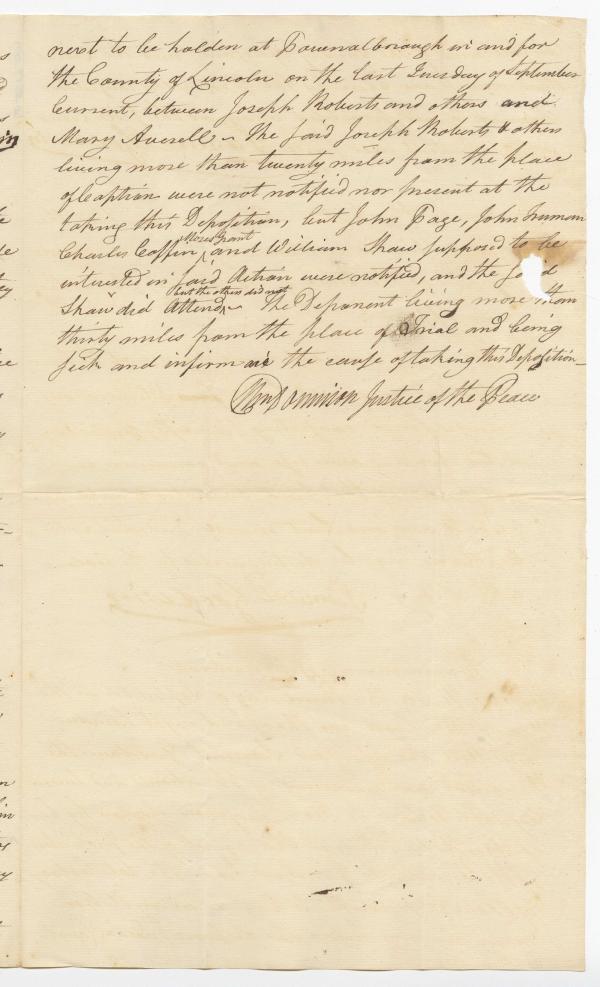 next to be holden at Pownalborough in and for
the County of Lincoln on the last Tuesday of September
Current, between Joseph Roberts and others and
Mary Averell - The said Joseph Roberts & others
living more than twenty miles from the place
of Caption were not notified nor present at the
taking this Deposition, but John Page, John Truman
Moses Grant
Charles Coffin ^ and William Shaw supposed to be
interested in said Action were notified, and the said
but the others did not
Shaw did Attend ^ The Deponent living more than
thirty miles from the place of Trial and being
sick and infirm are the cause of taking this Deposition -
Justice of the Peace